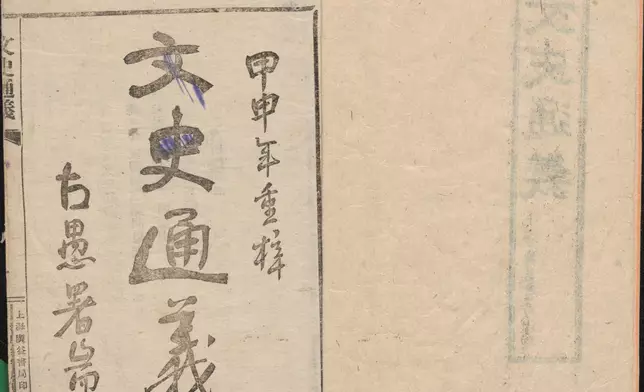 文史通義
甲申年重輯
文史通義
古愚署耑
文史通義
上海廣益書局印